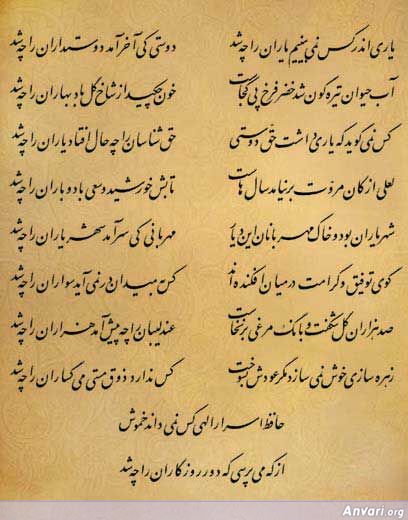 یاری اندر کس نمی بینیم یاران را چه شد دوستی کی آخر آمد دوستداران را چه شد
آب حیوان تیره گون شد خضر فرخ پی کجاست خون چکید از شاخ گل باد بهاران را چه شد
کس نمی گوید که یاری داشت حق دوستی حق شناسان را چه حال افتاد یاران را چه شد
لعلی از کان مروت برنیامد سال هاست تابش خورشید و سعی باد و باران را چه شد
شهر یاران بود و خاک مهربانان این دیار مهربانی کی سر آمد شهریاران را چه شد
گوی توفیق و کرامت در میان افکنده اند کس به میدان در نمی آید سواران را چه شد
صد هزاران گل شکفت و بانگ مرغی برنخاست عندلیبان را چه پیش آمد هزاران را چه شد
زهره سازی خوش نمی سازد مگر عودش بسوخت کس ندارد ذوق مستی می گساران را چه شد
حافظ اسرار الهی کس نمی داند خموش
از که می پرسی که دور روزگاران را چه شد
Anvari.org